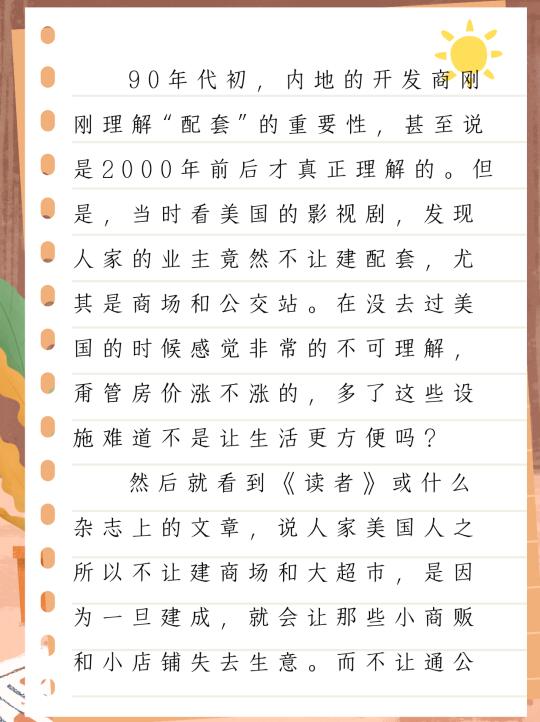 90年代初，内地的开发商刚
刚理解“配套”的重要性，甚至说
是2000年前后才真正理解的。但
是，当时看美国的影视剧，发现
人家的业主竟然不让建配套，尤
其是商场和公交站。在没去过美
国的时候感觉非常的不可理解，
甭管房价涨不涨的，多了这些设
施难道不是让生活更方便吗？
然后就看到《读者》或什么
杂志上的文章，说人家美国人之
所以不让建商场和大超市，是因
为一旦建成，就会让那些小商贩
和小店铺失去生意。而不让通公